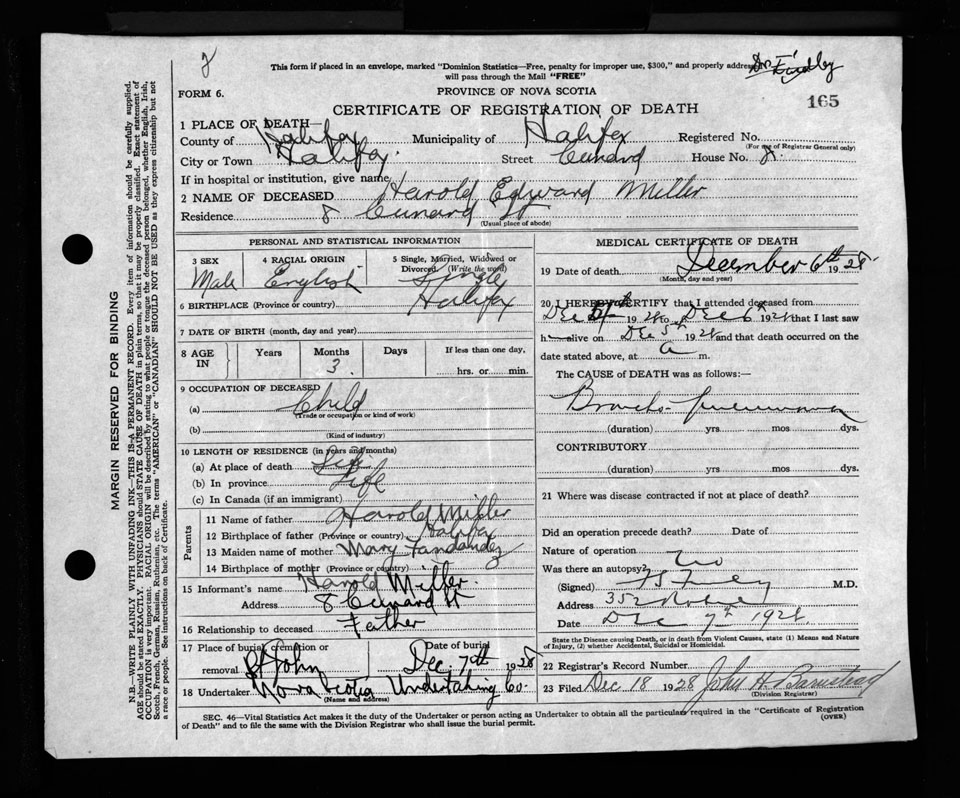 2
This form if placed in an envelope, marked "Dominion Statistics—Free, penalty for improper use, $300," and properly addressed
will pass through the Mail "FREE"
165
FORM 6.
PROVINCE OF NOVA SCOTIA
CERTIFICATE OF REGISTRATION OF DEATH
1 PLACE OF DEATH—
County of Halifax Municipality of Halifax Registered No.
(For use of Registrar General only)
City or Town Halifax. Street Cunard House No. 8.
If in hospital or institution, give name
2 NAME OF DECEASED Harold Edward Miller
Residence 8 Cunard St
(Usual place of abode)
PERSONAL AND STATISTICAL INFORMATION
3 SEX Male
4 RACIAL ORIGIN English
5 Single, Married, Widowed or Divorced (Write the word) Single
6 BIRTHPLACE (Province or country) Halifax
7 DATE OF BIRTH (month, day and year)
8 AGE IN Years Months 3. Days If less than one day,
hrs. or min.
9 OCCUPATION OF DECEASED
(a) Child
(Trade or occupation or kind of work)
(b)
(Kind of industry)
10 LENGTH OF RESIDENCE (in years and months)
(a) At place of death Life
(b) In province Life
(c) In Canada (if an immigrant)
Parents
11 Name of father Harold Miller
12 Birthplace of father (Province or country) Halifax
13 Maiden name of mother Mary
14 Birthplace of mother (Province or country)
15 Informant's name Harold Miller.
Address 8 Cunard St
16 Relationship to deceased Father
17 Place of burial, cremation or removal St John Date of burial Dec. 7th 1928
18 Undertaker Nova Scotia Undertaking Co.
(Name and address)
MEDICAL CERTIFICATE OF DEATH
19 Date of death December 6th 1928.
(Month, day and year)
20 I HEREBY CERTIFY that I attended deceased from
Dec 1928 to Dec 6th 1928 that I last saw
h alive on Dec 5th 1928 and that death occurred on the
date stated above, at a m.
The CAUSE of DEATH was as follows:—
Broncho-pneumonia
(duration) yrs. mos dys.
CONTRIBUTORY
(duration) yrs. mos dys.
21 Where was disease contracted if not at place of death?
Did an operation precede death? Date of
Nature of operation
Was there an autopsy? No
(Signed) M.D.
Address 352
Date Dec 7th 1928.
State the Disease causing Death, or in death from Violent Causes, state (1) Means and Nature
of Injury, (2) whether Accidental, Suicidal or Homicidal.
22 Registrar's Record Number
23 Filed Dec 18 1928 John H. Barnstead
(Division Registrar)
SEC. 46—Vital Statistics Act makes it the duty of the Undertaker or person acting as Undertaker to obtain all the particulars required in the "Certificate of Registration
of Death" and to file the same with the Division Registrar who shall issue the burial permit.
(OVER)
MARGIN RESERVED FOR BINDING
N.B.—WRITE PLAINLY WITH UNFADING INK—THIS IS A PERMANENT RECORD. Every item of information should be carefully supplied.
AGE should be stated EXACTLY. PHYSICIANS should STATE CAUSE OF DEATH in plain terms, so that it may be properly classified. Exact statement of
OCCUPATION is very important. RACIAL ORIGIN will be described by stating to what people or tongue the deceased person belonged, whether English, Irish,
Scotch, French, German, Russian, Ruthenian, etc. The terms "AMERICAN" or "CANADIAN" SHOULD NOT BE USED as they express citizenship but not
a race or people. See instructions on back of Certificate.